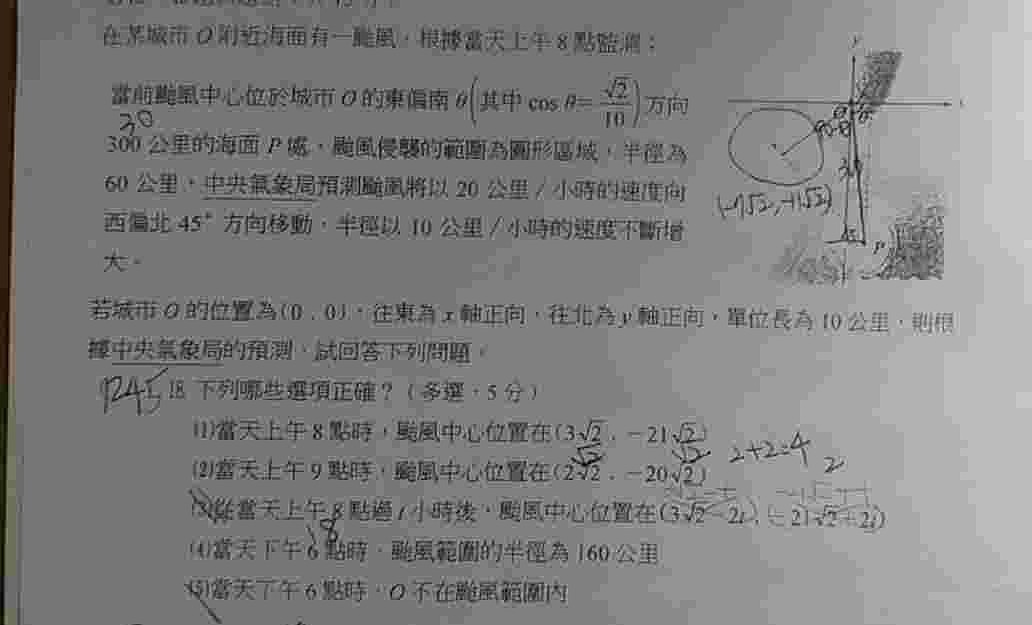 在某城市 O 附近海面有一颱風，根據當天上午 8 點監測：
當前颱風中心位於城市 O 的東偏南 θ(其中 cos θ=√2/10)方向
30
300 公里的海面 P 處，颱風侵襲的範圍為圓形區域，半徑為
60 公里，中央氣象局預測颱風將以 20 公里／小時的速度向
西偏北 45° 方向移動，半徑以 10 公里／小時的速度不斷增
大。
y
O
P
(-7√2,-11√2)
若城市 O 的位置為(0，0)，往東為 x 軸正向，往北為 y 軸正向，單位長為 10 公里，則根
據中央氣象局的預測，試回答下列問題。
1245 18 下列哪些選項正確？（多選，5 分）
(1)當天上午 8 點時，颱風中心位置在(3√2，-21√2)
√2 √2 2+2=4
(2)當天上午 9 點時，颱風中心位置在(2√2，-20√2)
2
(3)從當天上午 8 點過 t 小時後，颱風中心位置在(3√2-2t，-21√2+2t)
18
(4)當天下午 6 點時，颱風範圍的半徑為 160 公里
(5)當天下午 6 點時，O 不在颱風範圍內